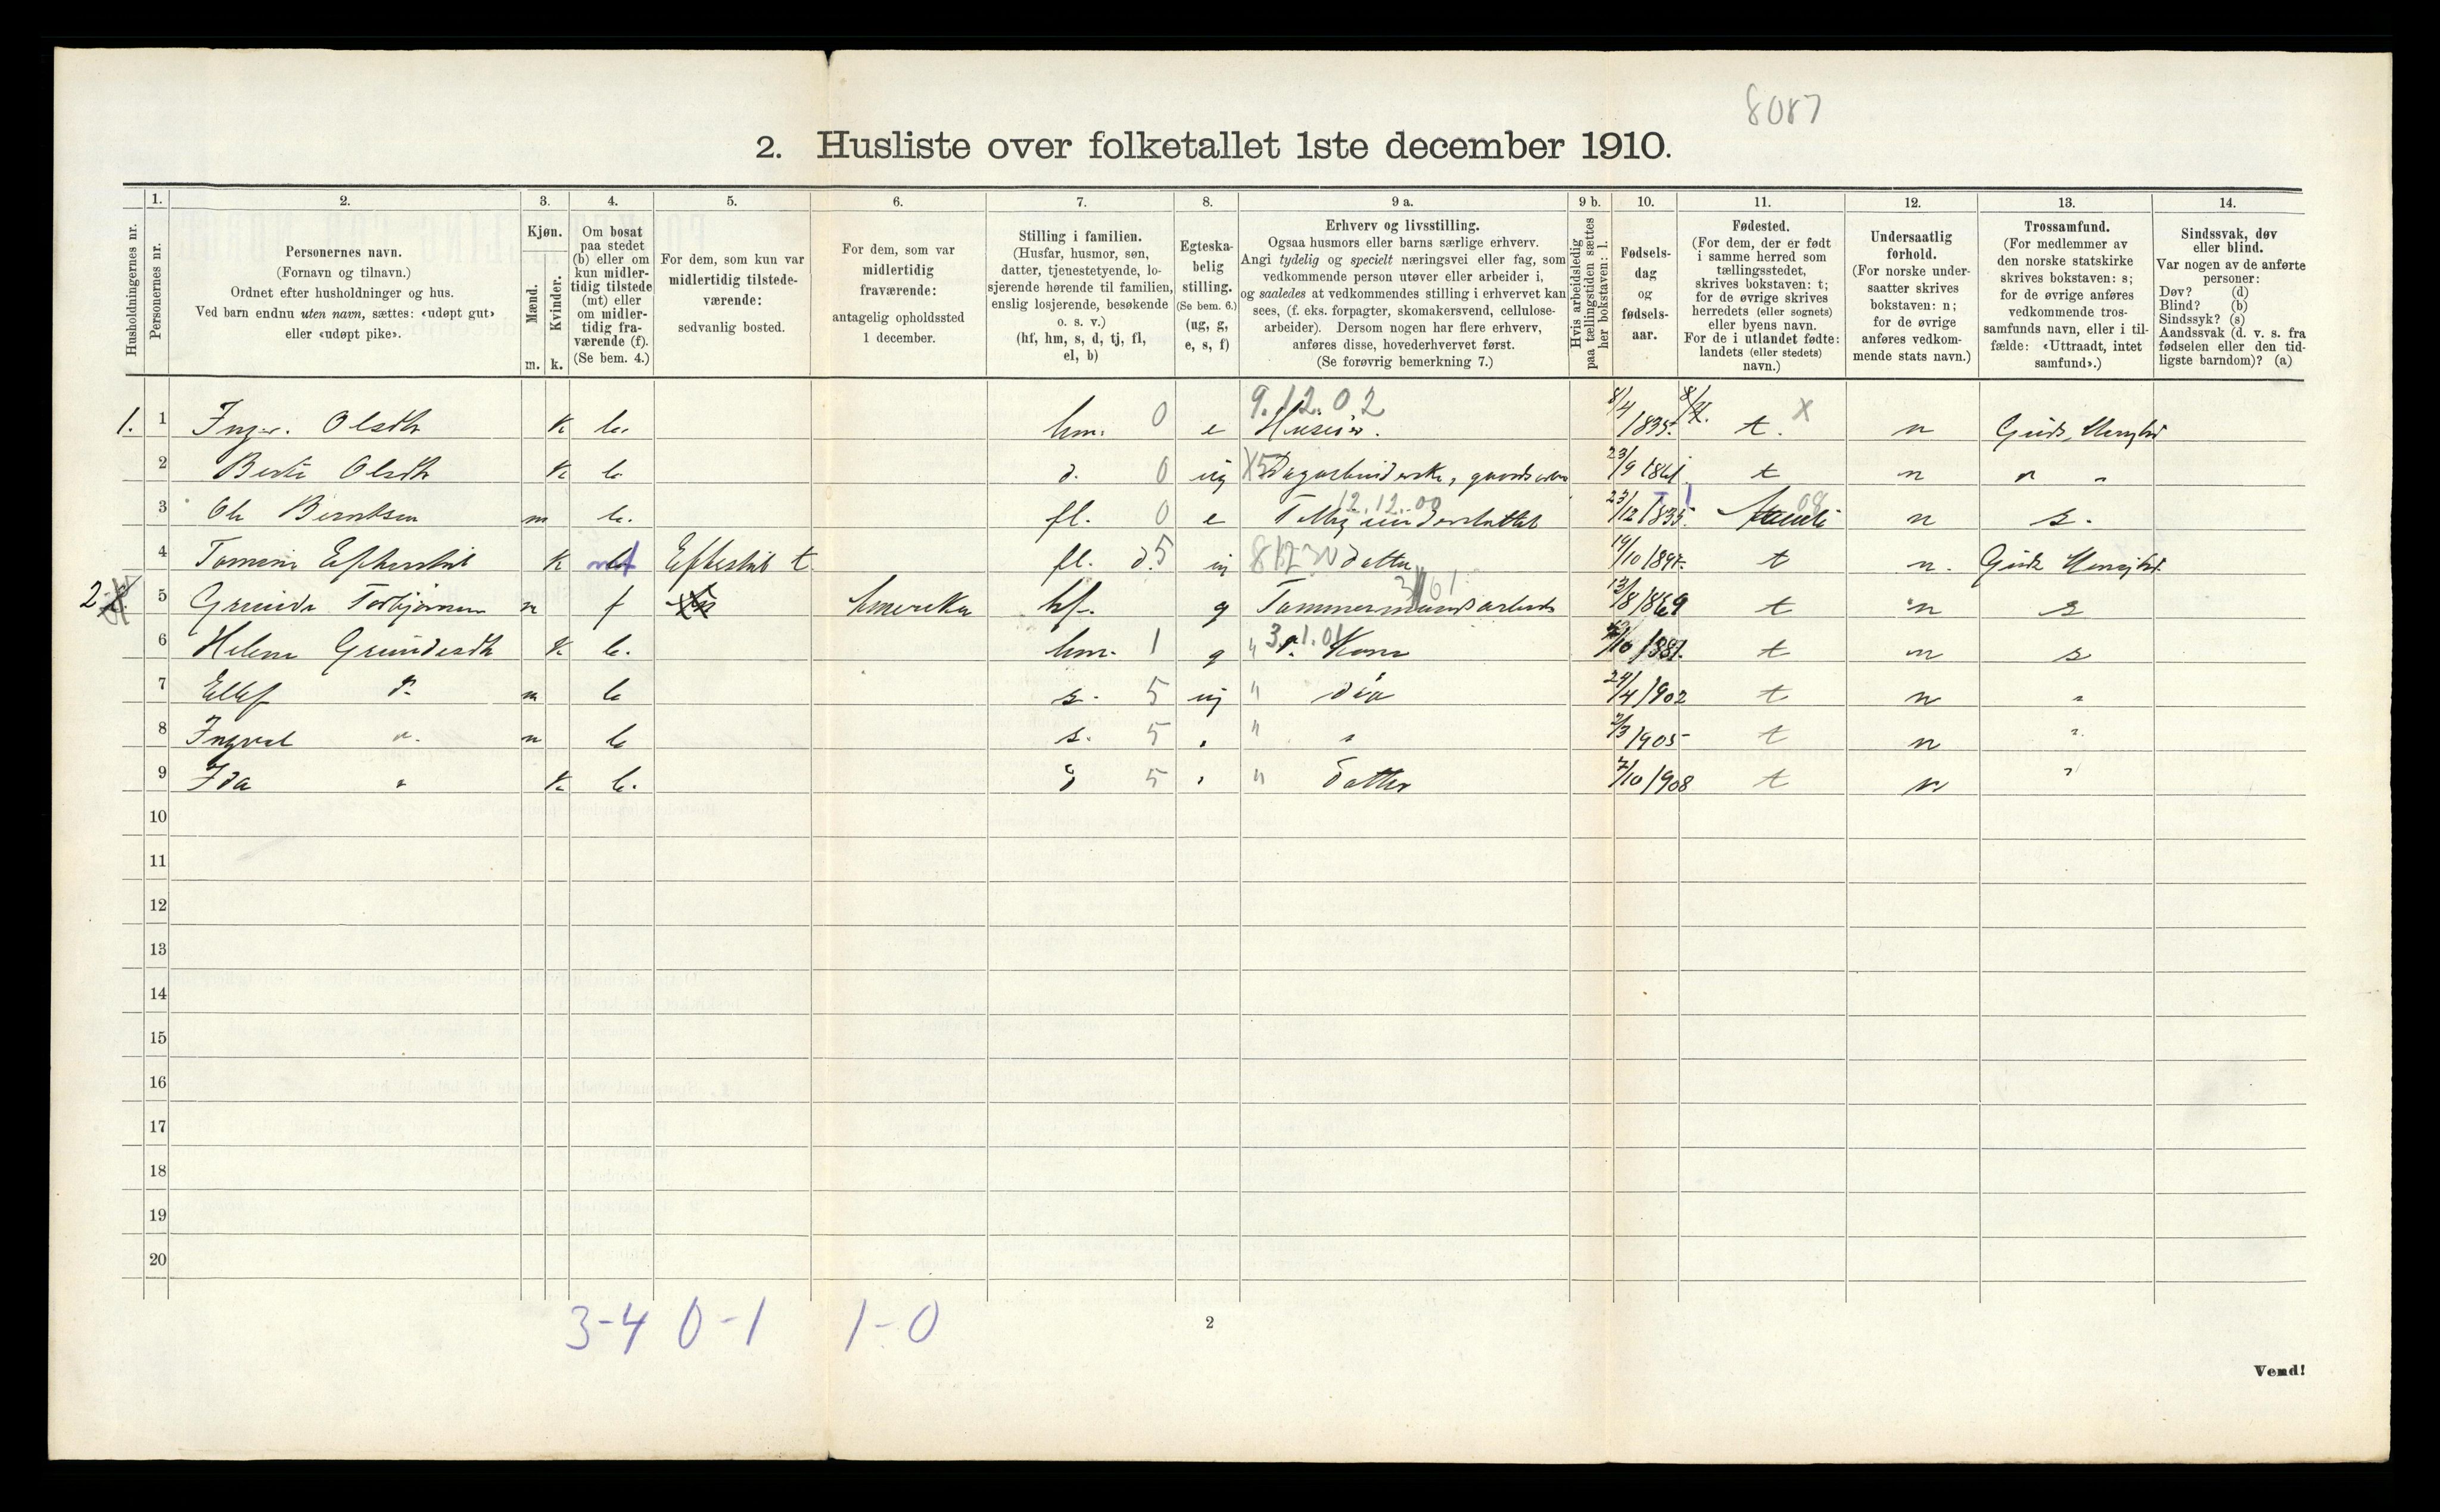 8087
2. Husliste over folketallet 1ste december 1910.
1. 2. 3. 4. 5. 6. 7. 8. 9 a. 9 b. 10. 11. 12. 13. 14.
Husholdningernes nr.
Personernes nr.
Personernes navn.
(Fornavn og tilnavn.)
Ordnet efter husholdninger og hus.
Ved barn endnu uten navn, sættes: «udøpt gut»
eller «udøpt pike».
Kjøn.
Mænd.
Kvinder.
m. k.
Om bosat
paa stedet
(b) eller om
kun midler-
tidig tilstede
(mt) eller
om midler-
tidig fra-
værende (f).
(Se bem. 4.)
For dem, som kun var
midlertidig tilstede-
værende:
sedvanlig bosted.
For dem, som var
midlertidig
fraværende:
antagelig opholdssted
1 december.
Stilling i familien.
(Husfar, husmor, søn,
datter, tjenestetyende, lo-
sjerende hørende til familien,
enslig losjerende, besøkende
o. s. v.)
(hf, hm, s, d, tj, fl,
el, b)
Egteska-
belig
stilling.
(Se bem. 6.)
(ug, g,
e, s, f)
Erhverv og livsstilling.
Ogsaa husmors eller barns særlige erhverv.
Angi tydelig og specielt næringsvei eller fag, som
vedkommende person utøver eller arbeider i,
og saaledes at vedkommendes stilling i erhvervet kan
sees, (f. eks. forpagter, skomakersvend, cellulose-
arbeider). Dersom nogen har flere erhverv,
anføres disse, hovederhvervet først.
(Se forøvrig bemerkning 7.)
Hvis arbeidsledig
paa tællingstiden sættes
her bokstaven: l.
Fødsels-
dag
og
fødsels-
aar.
Fødested.
(For dem, der er født
i samme herred som
tællingsstedet,
skrives bokstaven: t;
for de øvrige skrives
herredets (eller sognets)
eller byens navn.
For de i utlandet fødte:
landets (eller stedets)
navn.)
Undersaatlig
forhold.
(For norske under-
saatter skrives
bokstaven: n;
for de øvrige
anføres vedkom-
mende stats navn.)
Trossamfund.
(For medlemmer av
den norske statskirke
skrives bokstaven: s;
for de øvrige anføres
vedkommende tros-
samfunds navn, eller i til-
fælde: «Uttraadt, intet
samfund».)
Sindssvak, døv
eller blind.
Var nogen av de anførte
personer:
Døv? (d)
Blind? (b)
Sindssyk? (s)
Aandssvak (d. v. s. fra
fødselen eller den tid-
ligste barndom)? (a)
9.12.02
1. 1 Olsdtr k b. hm. 0 e 8/4 1835. t. X n
2 Olsdtr k b. d. 0 ug 23/9 1861 t n " "
12.12.00
3 Ole Berntsen m b. fl. 0 e 23/12 1835. 08 n s.
4 k mt t fl. d. 5 ug datter 14/10 t n.
2 5 m f Amerika hf. g Tømmermandsarbeide 13/8 1869 t n s
3.1.01
6 Helene k b. hm. 1 g " Kone t n s
7 Ellef m b s. 5 ug " 24/4 1902 t n "
8 Ingval " m b s. 5 " " " 2/3 1905 t n "
9 Ida " k b. d 5 " " datter 7/10 1908 t n "
10
11
12
13
14
15
16
17
18
19
20
3-4 0-1 1-0
2
Vend!